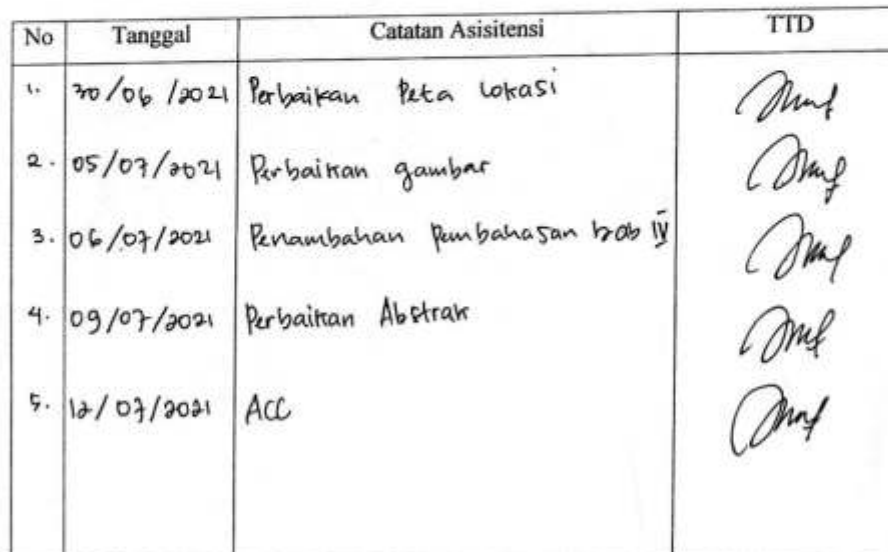 No Tanggal Catatan Asisitensi TTD
1. 30/06/2021 Perbaikan Peta Lokasi
2. 05/07/2021 Perbaikan gambar
3. 06/07/2021 Penambahan Pembahasan bab IV
4. 09/07/2021 Perbaikan Abstrak
5. 12/07/2021 ACC